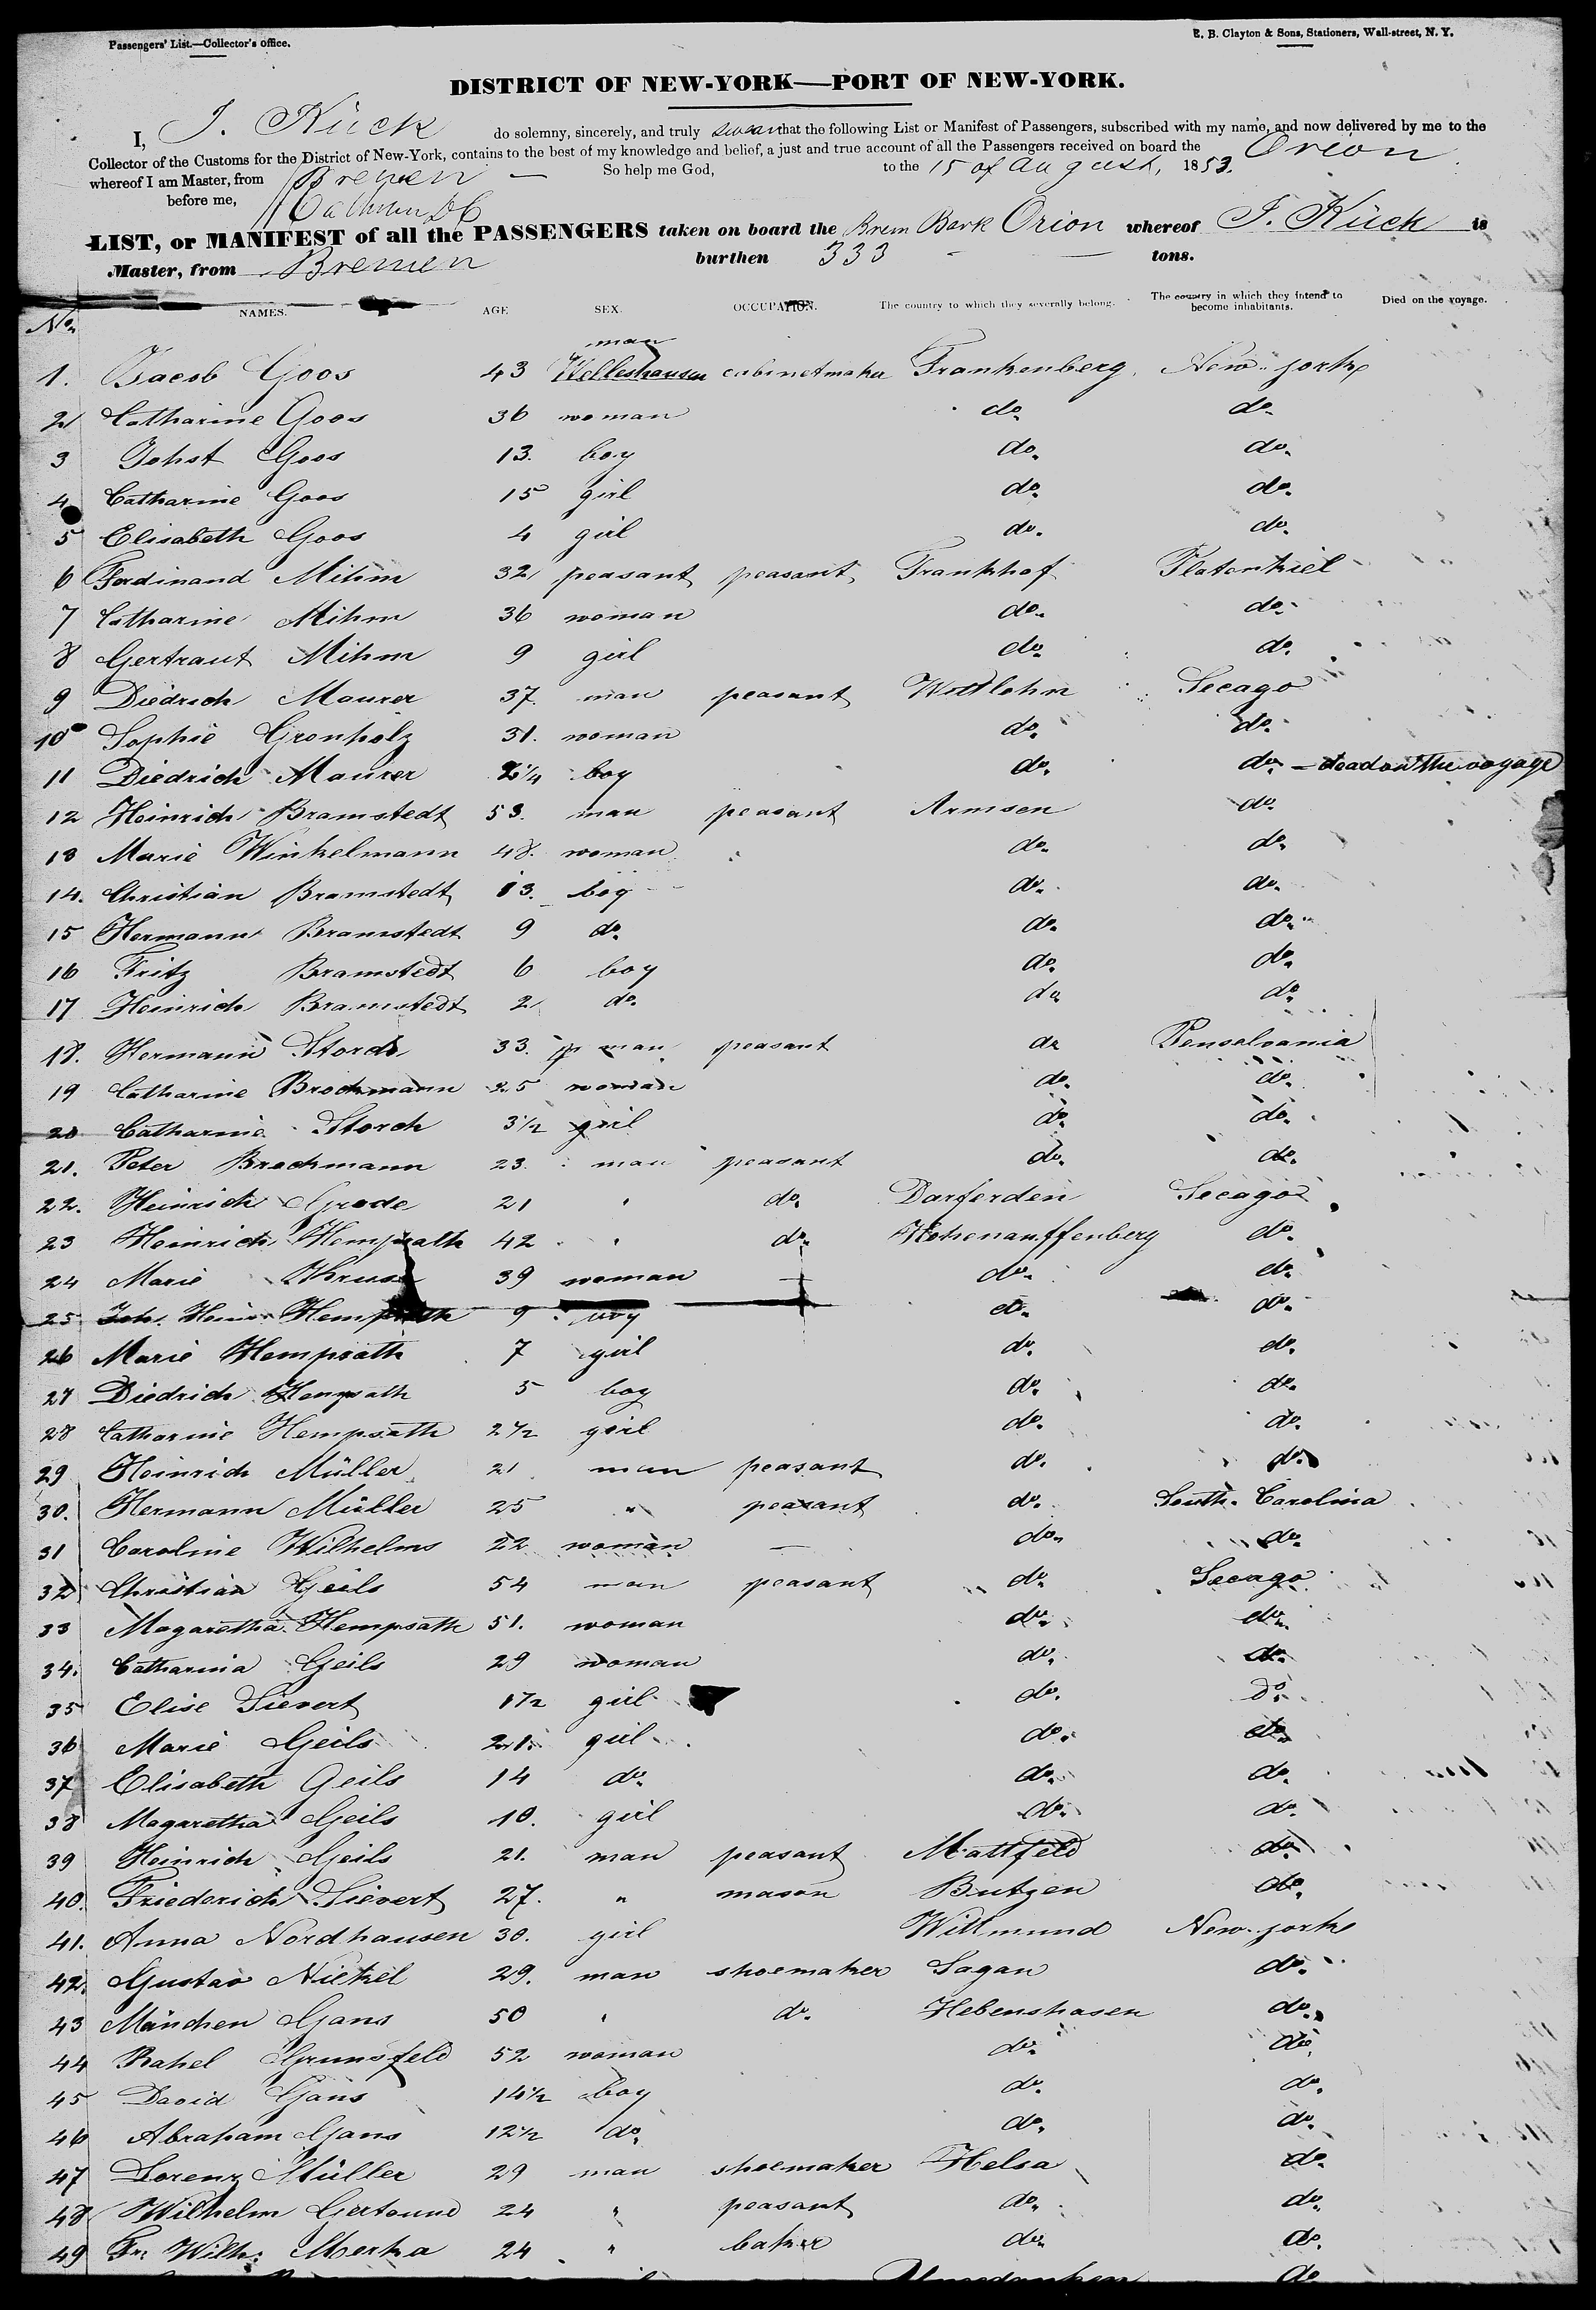 Passengers' List.—Collector's Office.
E. B. Clayton & Sons, Stationers, Wall-street, N. Y.
DISTRICT OF NEW-YORK—PORT OF NEW-YORK.
I, J. Kück do solemny, sincerely, and truly swear that the following List or Manifest of Passengers, subscribed with my name, and now delivered by me to the
Collector of the Customs for the District of New-York, contains to the best of my knowledge and belief, a just and true account of all the Passengers received on board the Orion
whereof I am Master, from Bremen — So help me God, to the 15 of August, 1853.
before me,
LIST, or MANIFEST of all the PASSENGERS taken on board the Brem Bark Orion whereof J. Kück is
Master, from Bremen burthen 333 tons.
No. NAMES. AGE SEX. OCCUPATION. The country to which they severally belong. The country in which they intend to become inhabitants. Died on the voyage.
man
1. Jacob Goos 43 cabinetmaker Frankenberg. New-york
2 Catharine Goos 36 woman do. do.
3 Johst Goos 13. boy do. do.
4 Catharine Goos 15 girl do. do.
5 Elisabeth Goos 4 girl do. do.
6 Ferdinand Mihm 32 peasant peasant Frankhof Platenkiel
7 Catharine Mihm 36 woman do. do.
8 Gertraut Mihm 9 girl do. do.
9 Diedrich Maurer 37. man peasant Wottlohn Secago
10 Sophie Gronholz 31. woman do. do.
11 Diedrich Maurer 2 1/4 boy do. do. – dead on the voyage
12 Heinrich Bramstedt 53. man peasant Armsen do.
13 Marie Winkelmann 48. woman do. do.
14. Christian Bramstedt 13. boy do. do.
15 Hermann Bramstedt 9 do. do. do.
16 Fritz Bramstedt 6 boy do. do.
17 Heinrich Bramstedt 2 do. do. do.
18. Hermann Storch 33. man peasant do. Penselvania
19 Catharine Brockmann 25 woman do. do.
20 Catharine Storch 3 1/2 girl do. do.
21. Peter Brockmann 23. man peasant do. do.
22. Heinrich Grode 21 " do. Darferden Secago
23 Heinrich Hempsath 42 " do. Hohenauffenberg do.
24 Marie Kruse 39 woman — do. do.
25 Joh. Heinr. Hempsath 9 boy do. do.
26 Marie Hempsath 7 girl do. do.
27 Diedrich Hempsath 5 boy do. do.
28 Catharine Hempsath 2 1/2 girl do. do.
29 Heinrich Müller 21 man peasant do. do.
30. Hermann Müller 25 " peasant do. South. Carolina
31 Caroline Wilhelms 22 woman — do. do.
32 Christian Geils 54 man peasant do. Secago
33 Magaretha Hempsath 51. woman do. do.
34. Catharina Geils 29 woman do. do.
35 Elise Sievert 1 1/2 girl do. do.
36 Marie Geils 21. girl do. do.
37 Elisabeth Geils 14 do. do. do.
38 Magaretha Geils 10. girl do. do.
39 Heinrich Geils 21. man peasant Mattfeld do.
40. Friederich Sievert 27. " mason Butzen do.
41. Anna Nordhausen 30. girl Wittmund New-york
42. Gustav Nickel 29. man shoemaker Sagan do.
43 Mänchen Gans 50 " do. Hebenshasen do.
44 Rahel Grunsfeld 52 woman do. do.
45 David Gans 14 1/2 boy do. do.
46 Abraham Gans 12 1/2 do. do. do.
47 Lorenz Müller 29 man shoemaker Helsa do.
48 Wilhelm 24 " peasant do. do.
49 Fr. Wilh. Merka 24 " baker do. do.
do